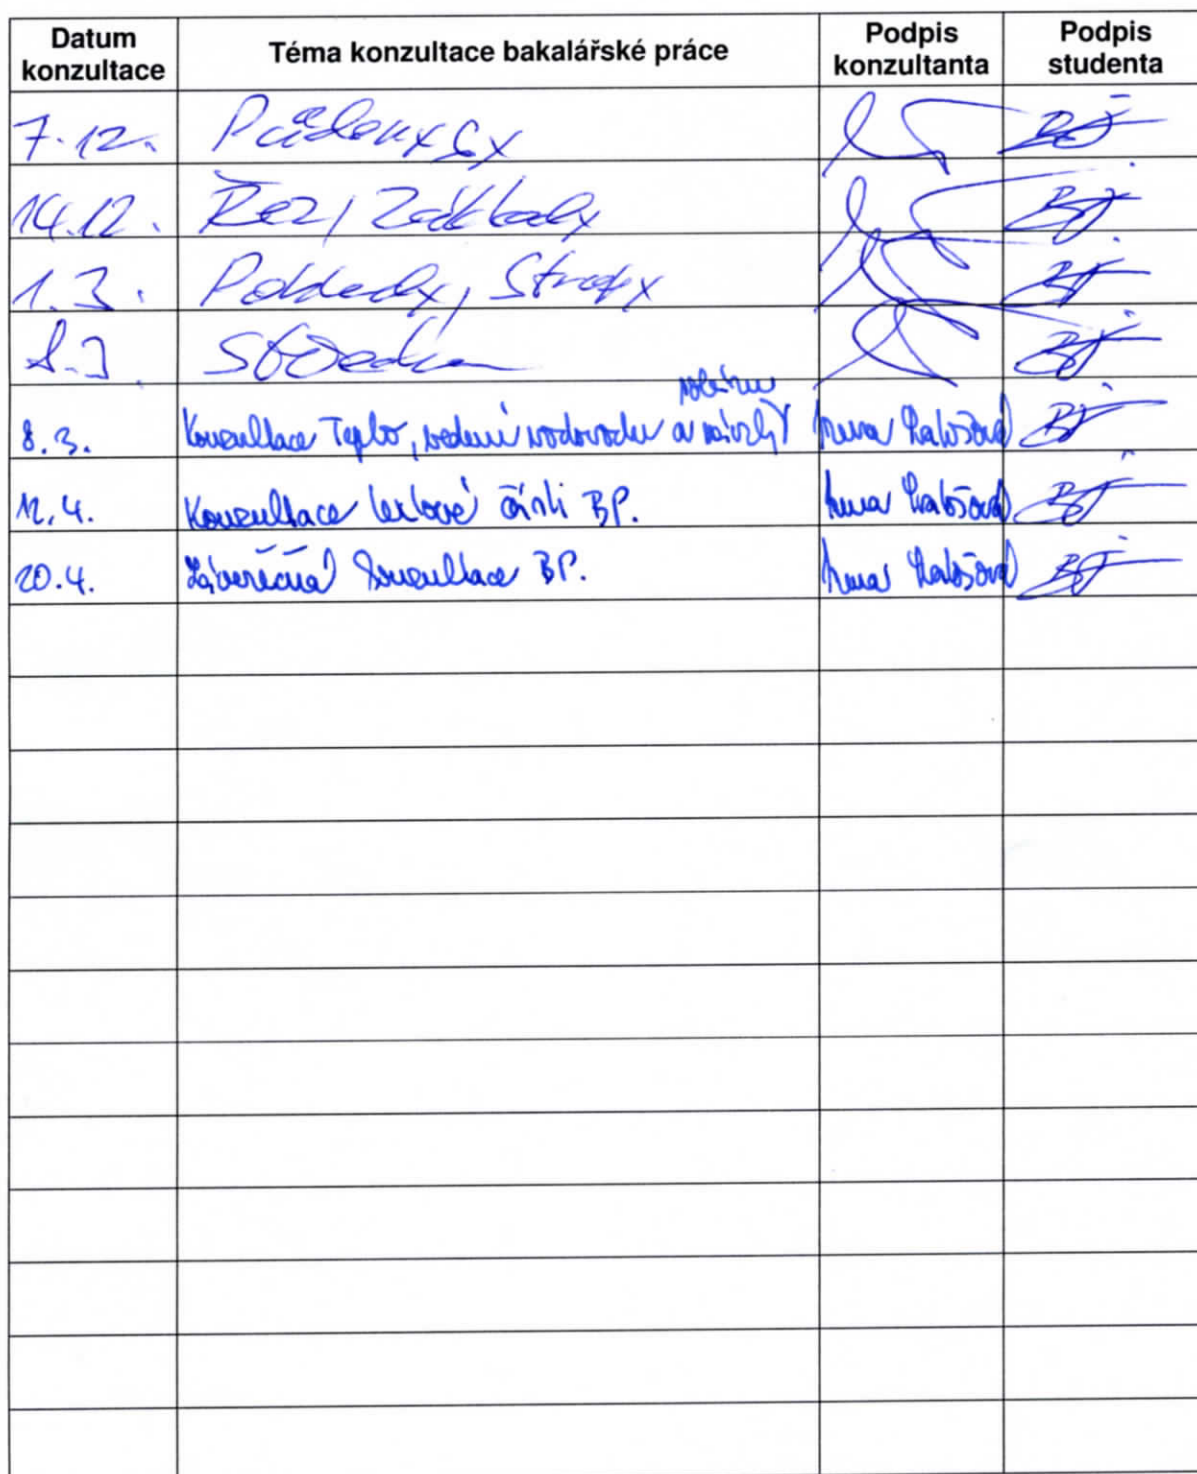 Datum konzultace Téma konzultace bakalářské práce Podpis konzultanta Podpis studenta
7.12. Půdorysy
14.12. Řez, Základy
1.3. Pohledy, Stropy
8.3. Střecha
8.3. Konzultace Teplo, vedení vodovodu a
12.4. Konzultace textové části BP.
20.4. Závěrečná konzultace BP.